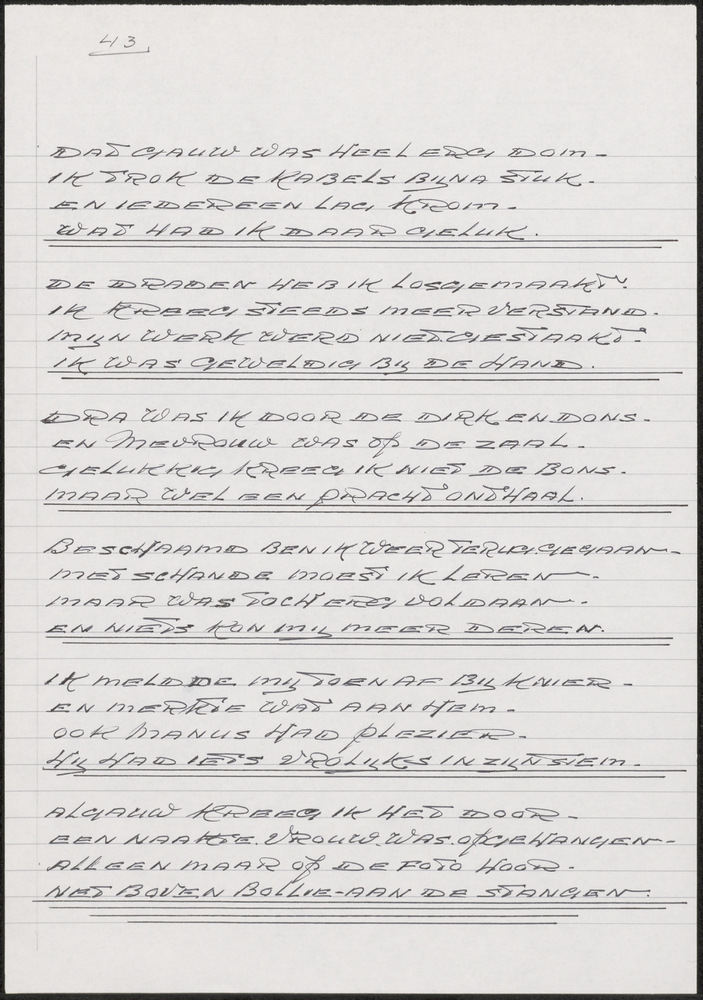 43
DAT GAUW WAS HEEL ERG DOM-
IK TROK DE KABELS BIJNA STUK.
EN IEDEREEN LAG KROM-
WAT HAD IK DAAR GELUK.
DE DRADEN HEB IK LOSGEMAAKT.
IK KREEG STEEDS MEER VERSTAND.
MIJN WERK WERD NIET GESTAAKT.
IK WAS GEWELDIG BIJ DE HAND.
DRA WAS IK DOOR DE DIRK EN DONS-
EN MEVROUW WAS OP DE ZAAL-
GELUKKIG KREEG IK NIET DE BONS.
MAAR WEL EEN PRACHT ONTHAAL.
BESCHAAMD BEN IK WEER TERUG.GEGAAN-
MET SCHANDE MOEST IK LEREN-
MAAR WAS TOCH ERG VOLDAAN-
EN NIETS KON MIJ MEER DEREN.
IK MELDDE MIJ TOEN AF BIJ KNIER-
EN MERKTE WAT AAN HEM-
OOK MANUS HAD PLEZIER-
HIJ HAD IETS VROLIJKS IN ZIJN STEM.
ALGAUW KREEG IK HET DOOR-
EEN NAAKTE.VROUW.WAS.OPGEHANGEN-
ALLEEN MAAR OP DE FOTO HOOR-
NET BOVEN BOLLIE-AAN DE STANGEN.